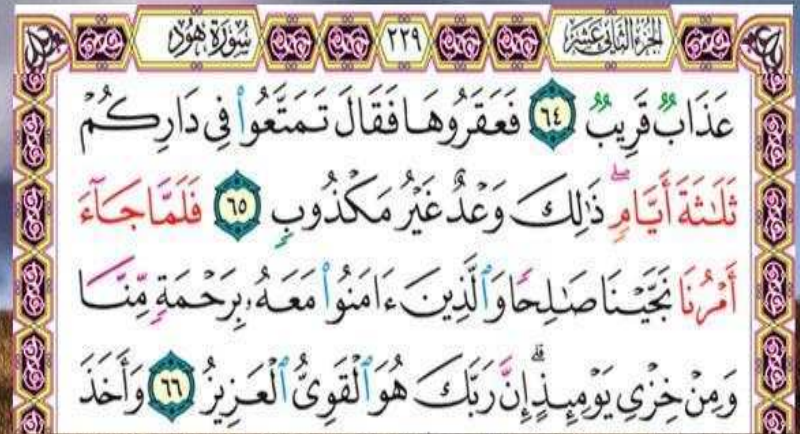 الجزء الثاني عشر ٢٢٩ سورة هود
عَذَابٌ قَرِيبٌ ٦٤ فَعَقَرُوهَا فَقَالَ تَمَتَّعُوا۟ فِى دَارِكُمْ
ثَلَـٰثَةَ أَيَّامٍ ۖ ذَٰلِكَ وَعْدٌ غَيْرُ مَكْذُوبٍ ٦٥ فَلَمَّا جَآءَ
أَمْرُنَا نَجَّيْنَا صَـٰلِحًا وَٱلَّذِينَ ءَامَنُوا۟ مَعَهُۥ بِرَحْمَةٍ مِّنَّا
وَمِنْ خِزْىِ يَوْمِئِذٍ ۗ إِنَّ رَبَّكَ هُوَ ٱلْقَوِىُّ ٱلْعَزِيزُ ٦٦ وَأَخَذَ